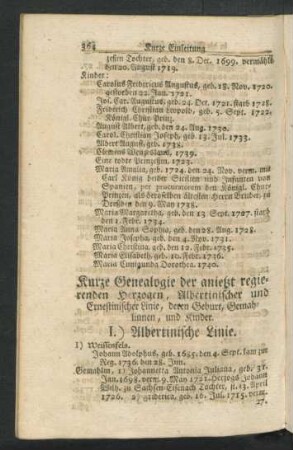 364 Kurze Einleitung
zesin Tochter, geb. den 8. Dec. 1699. vermählt
den 20. August 1719.
Kinder:
Carolus Fridericus Augustus, geb. 18. Nov. 1720.
gestorben 22. Jan. 1721.
Jos. Car. Augustus, geb. 24. Oct. 1721. starb 1728.
Friderich Christian Leopold, geb. 5. Sept. 1722.
Königl. Chur-Prinz.
August Albert, geb. den 24. Aug. 1730.
Carol. Christian Joseph, geb. 13. Jul. 1733.
Albert August, geb. 1738.
Clemens Wenzeslaus, 1739.
Eine todte Prinzeßin, 1723.
Maria Amalia, geb. 1724. den 24. Nov. verm. mit
Carl König beider Sicilien und Infanten von
Spanien, per procuratorem den Königl. Chur-
Prinzen, als derselben ältesten Herrn Bruder, zu
Dresden den 9. May 1738.
Maria Margaretha, geb. den 13 Sept. 1727. starb
den 1. Febr. 1734.
Maria Anna Sophia, geb. den 28. Aug. 1728.
Maria Josepha, geb. den 4. Nov. 1731.
Maria Christina, geb. den 12. Febr. 1735.
Maria Elisabeth, geb. 10. Febr. 1736.
Maria Cunigunda Dorothea. 1740.
Kurze Genealogie der anietzt regie-
renden Herzogen, Albertinischer und
Ernestinischer Linie, deren Geburt, Gemah-
linnen, und Kinder.
I.) Albertinische Linie.
1) Weissenfels.
Johann Adolphus, geb. 1685. den 4. Sept. kam zur
Reg. 1736. den 28. Jun.
Gemahlin, 1) Johannetta Antonia Juliana, geb. 31.
Jan. 1698. verm. 9. May 1721. Herzogs Johann
Wilh. zu Sachsen-Eisenach Tochter, st. 13. April
1726. 2) Friderica, geb. 16. Jul. 1715. verm.
27.